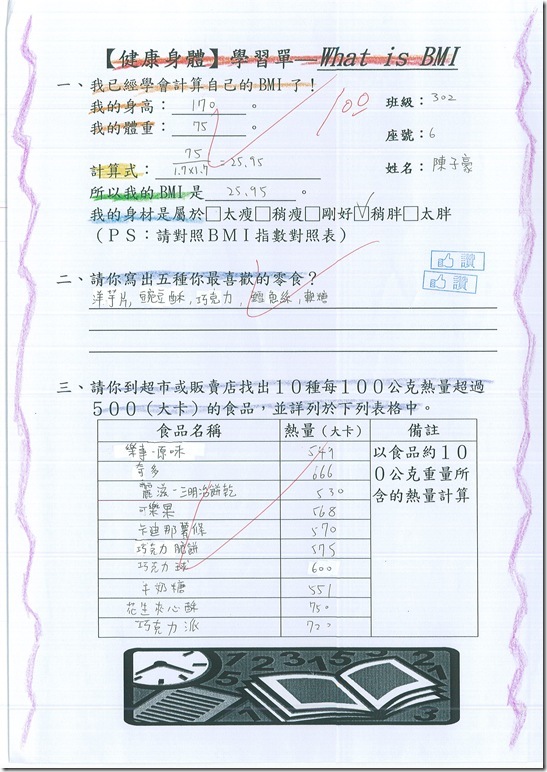 【健康身體】學習單—What is BMI
一、我已經學會計算自己的BMI了!
100
我的身高:170。
班級:302
我的體重:75。
座號:6
計算式:75/1.7x1.7=25.95
姓名:陳子豪
所以我的BMI是25.95。
我的身材是屬於□太瘦□稍瘦□剛好☑稍胖□太胖
(PS:請對照BMI指數對照表)
讚
讚
二、請你寫出五種你最喜歡的零食?
洋芋片,豌豆酥,巧克力,鱈魚絲,軟糖
三、請你到超市或販賣店找出10種每100公克熱量超過
500(大卡)的食品,並詳列於下列表格中。
食品名稱 熱量(大卡) 備註
樂事-原味 549
以食品約100公克重量所含的熱量計算
奇多 666
麗滋-三明治餅乾 530
可樂果 568
卡迪那薯條 570
巧克力脆餅 575
巧克力球 600
牛奶糖 551
花生夾心酥 750
巧克力派 720